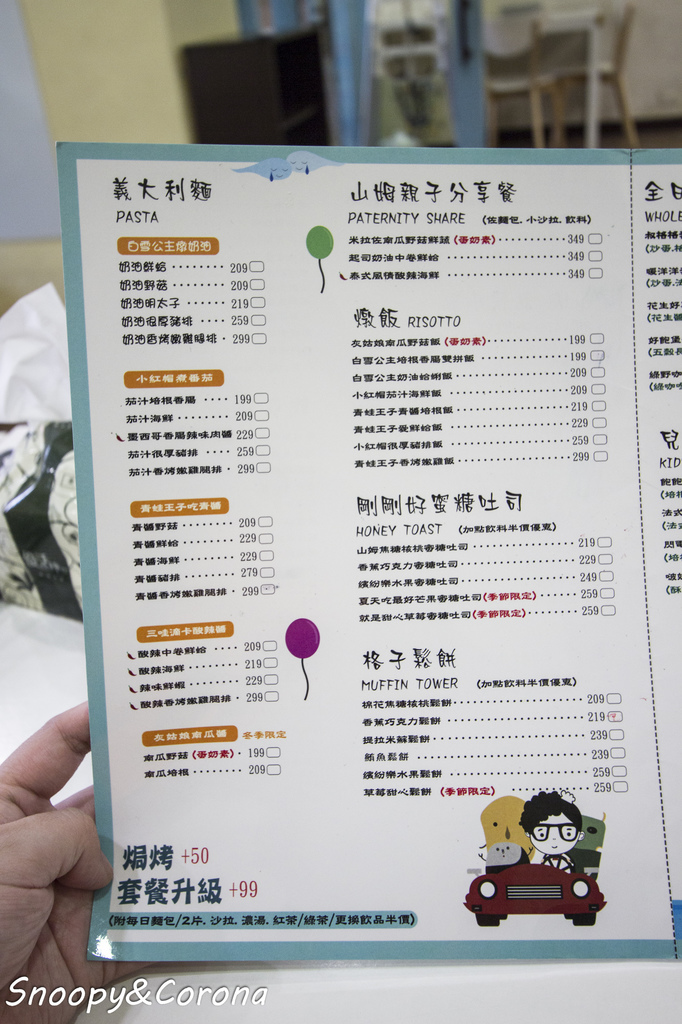 義大利麵
PASTA
白雪公主燉奶油
奶油鮮蛤 209
奶油野菇 209
奶油明太子 219
奶油很厚豬排 259
奶油香烤嫩雞腿排 299
小紅帽煮番茄
茄汁培根香腸 199
茄汁海鮮 209
墨西哥香腸辣味肉醬 229
茄汁很厚豬排 259
茄汁香烤嫩雞腿排 299
青蛙王子吃青醬
青醬野菇 209
青醬鮮蛤 229
青醬海鮮 229
青醬豬排 279
青醬香烤嫩雞腿排 299
三哇滴卡酸辣醬
酸辣中卷鮮蛤 209
酸辣海鮮 219
辣味鮮蝦 229
酸辣香烤嫩雞腿排 299
灰姑娘南瓜醬 冬季限定
南瓜野菇(蛋奶素) 199
南瓜培根 209
焗烤 +50
套餐升級 +99
(附每日麵包/2片. 沙拉. 濃湯. 紅茶/綠茶/更換飲品半價)
山姆親子分享餐
PATERNITY SHARE (佐麵包. 小沙拉. 飲料)
米拉佐南瓜野菇鮮蔬(蛋奶素) 349
起司奶油中卷鮮蛤 349
泰式風情酸辣海鮮 349
燉飯 RISOTTO
灰姑娘南瓜野菇飯(蛋奶素) 199
白雪公主培根香腸雙拼飯 199
白雪公主奶油蛤蜊飯 209
小紅帽茄汁海鮮飯 209
青蛙王子青醬培根飯 219
青蛙王子愛鮮蛤飯 229
小紅帽很厚豬排飯 259
青蛙王子香烤嫩雞飯 299
剛剛好蜜糖吐司
HONEY TOAST (加點飲料半價優惠)
山姆焦糖核桃蜜糖吐司 219
香蕉巧克力蜜糖吐司 229
繽紛樂水果蜜糖吐司 249
夏天吃最好芒果蜜糖吐司(季節限定) 259
就是甜心草莓蜜糖吐司(季節限定) 259
格子鬆餅
MUFFIN TOWER (加點飲料半價優惠)
棉花焦糖核桃鬆餅 209
香蕉巧克力鬆餅 219
提拉米蘇鬆餅 239
鮪魚鬆餅 239
繽紛樂水果鬆餅 259
草莓甜心鬆餅 (季節限定) 259
全日
WHOLE
暖洋洋
花生好
(花生醬
好飽堡
(五穀長
綠野咖
(綠咖哩
兒
KID
飽飽
(培根
法式
閃電
啵
Snoopy&Corona